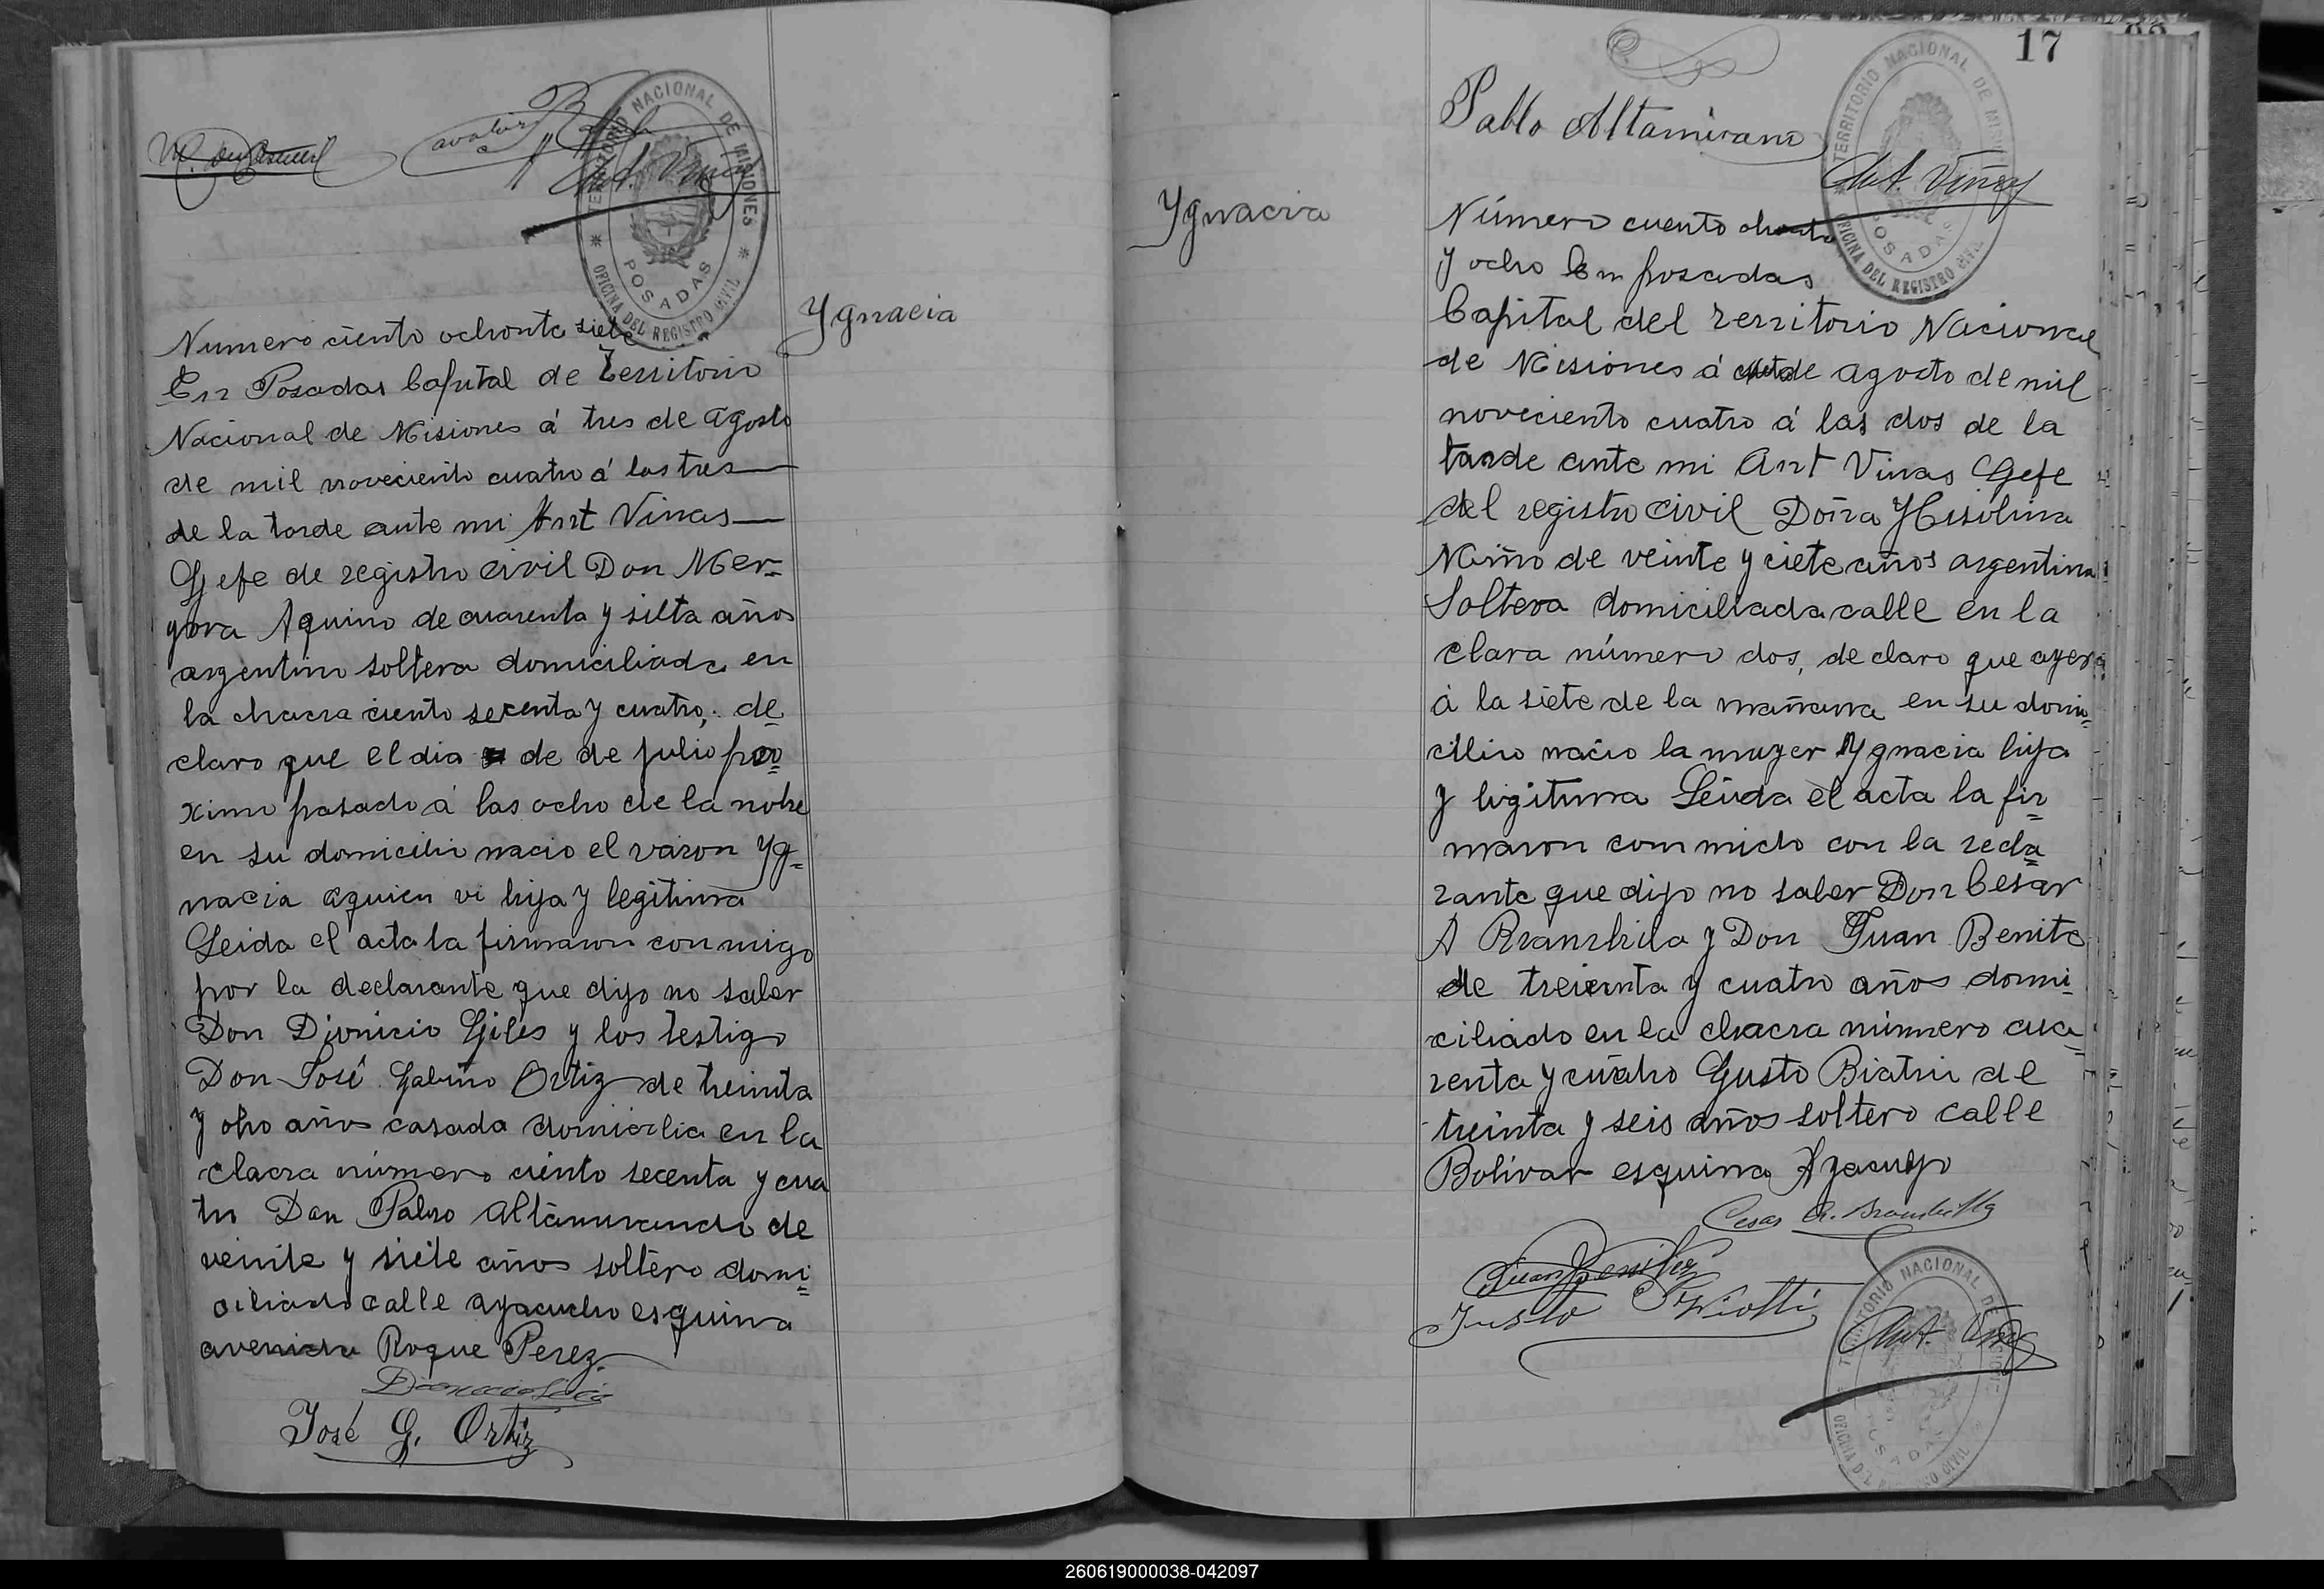 NACIONAL DE MISIONES
POSADAS
OFICINA DEL REGISTRO CIVIL
Ant. Viñas
Numero ciento ochonta siete
En Posadas Capital de Territorio
Nacional de Misiones á tres de agosto
de mil noveciento cuatro á las tres
de la tarde ante mi Ant Vinas
Gefe de registro civil Don Mer=
gora Aquino de cuarenta y sieta años
argentino soltera domiciliada en
la chacra ciento secenta y cuatro, de
claro que el dia de de julio pro
ximo pasado á las ocho de la nohe
en su domicilio nacio el varon Yg=
nacia aquien vi hija y legitima
Leida el acta la firmaron conmigo
por la declarante que dijo no saber
Don Dionicio Giles y los testigo
Don José Gabino Ortiz de treinta
y oho años casada domicilia en la
clacra número ciento secenta y cua
tro Don Pablo Altamirando de
veinte y siete años soltero domi=
ciliado calle ayacucho esquina
avenida Roque Perez.
José G. Ortiz
Ygnacia
17
Pablo Altamirano
TERRITORIO NACIONAL DE MISIONES
POSADAS
OFICINA DEL REGISTRO CIVIL
Ant. Viñas
Ygnacia
Número cuento ohonta
y ocho En posadas
Capital del Territorio Nacional
de Misiones á de agosto de mil
noveciento cuatro á las dos de la
tarde ante mi Ant Vinas Gefe
del registro civil Doña
Miño de veinte y ciete años argentina
Soltera domiciliada calle en la
clara número dos, declaro que ayer
á la siete de la mañana en su domi=
cilio nacio la muger Ygnacia hija
y ligitima Leida el acta la fir
maron commido con la recla
rante que dijo no saber Don Cesar
A Brambila y Don Juan Benite
de treienta y cuatro años domi
ciliado en la chacra número cua
renta y cuatro Gusto Biatri de
treinta y seis años soltero calle
Bolivar esquina Ayacuyo
Cesar A. Brambilla
Juan Benitez
Justo Priotti
TERRITORIO NACIONAL DE
POSADAS
Ant. Viñas
260619000038-042097